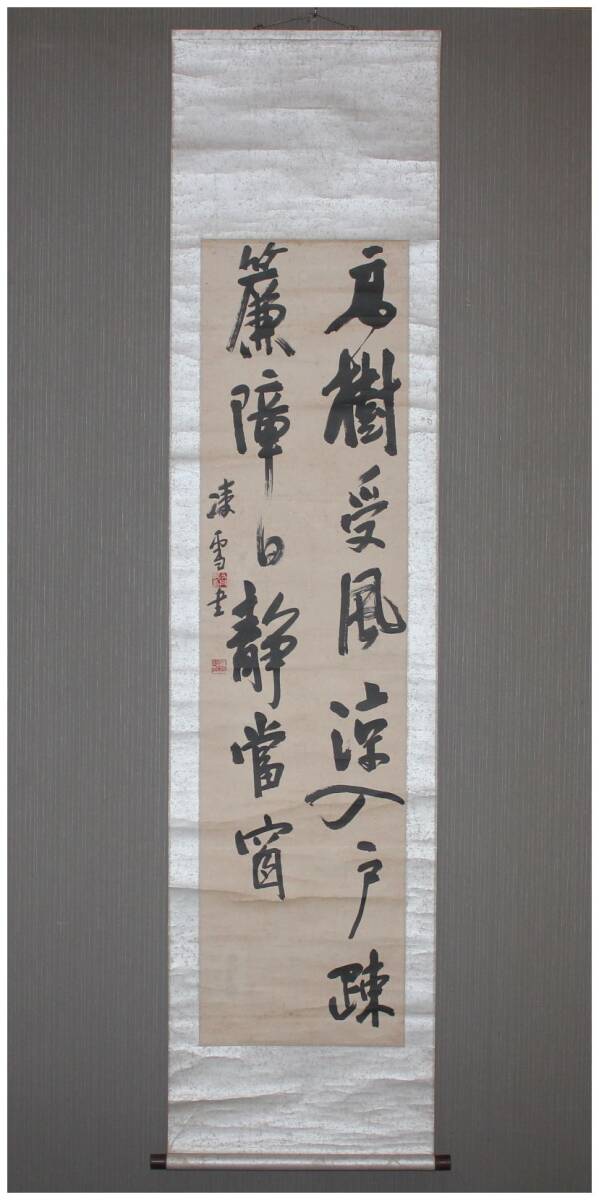 高樹受風涼入戸踈
簾障日静當窗
凌雪書